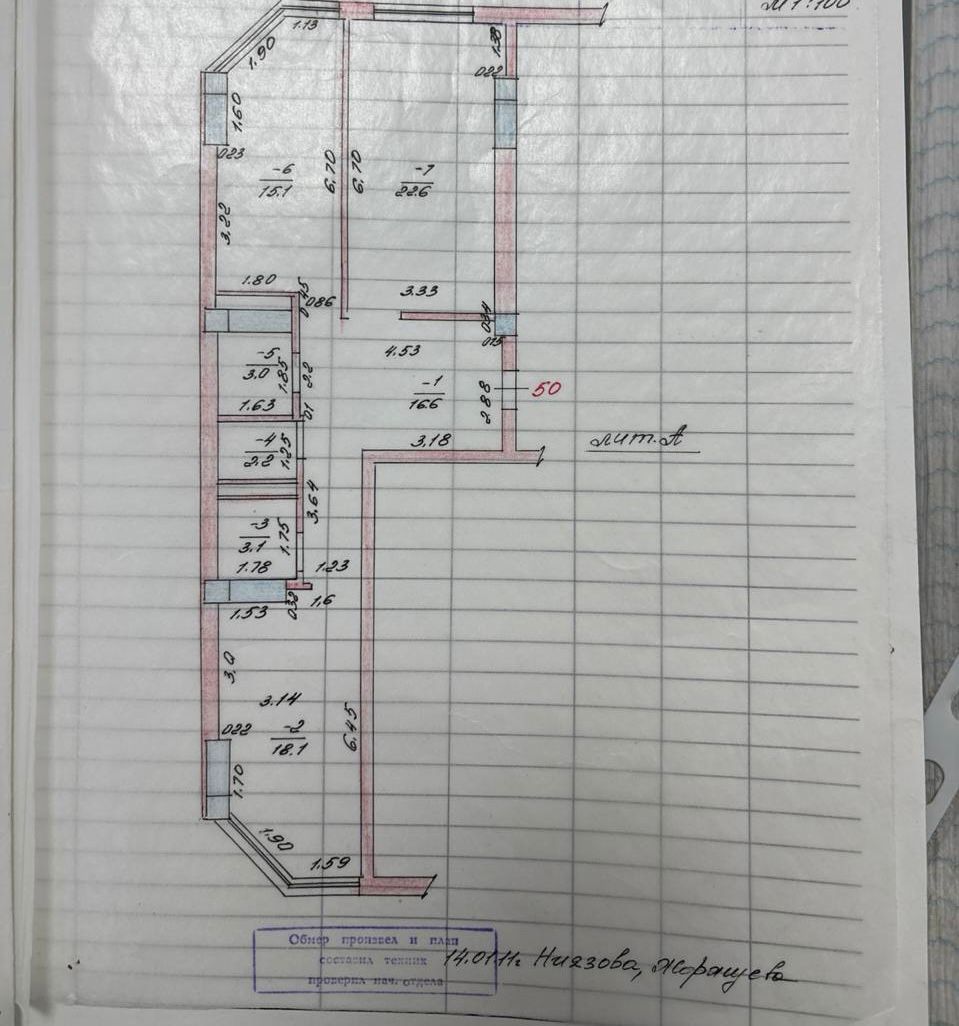 М 1:100
1.13
1.90
1.38
022
1.60
023
-6
15.1
6.70
6.70
-7
22.6
3.22
1.80
0.45
086
3.33
034
015
4.53
-5
3.0
1.85
2.2
-1
16.6
2.88
50
1.63
01
-4
2.2
1.25
3.18
лит.А
3.64
-3
3.1
1.75
1.78
1.23
1.53
032
1.6
3.0
3.14
022
-2
18.1
6.45
1.70
1.90
1.59
Обмер произвел и план
составил техник
проверил нач. отдела
14.01.11г Ниязова,